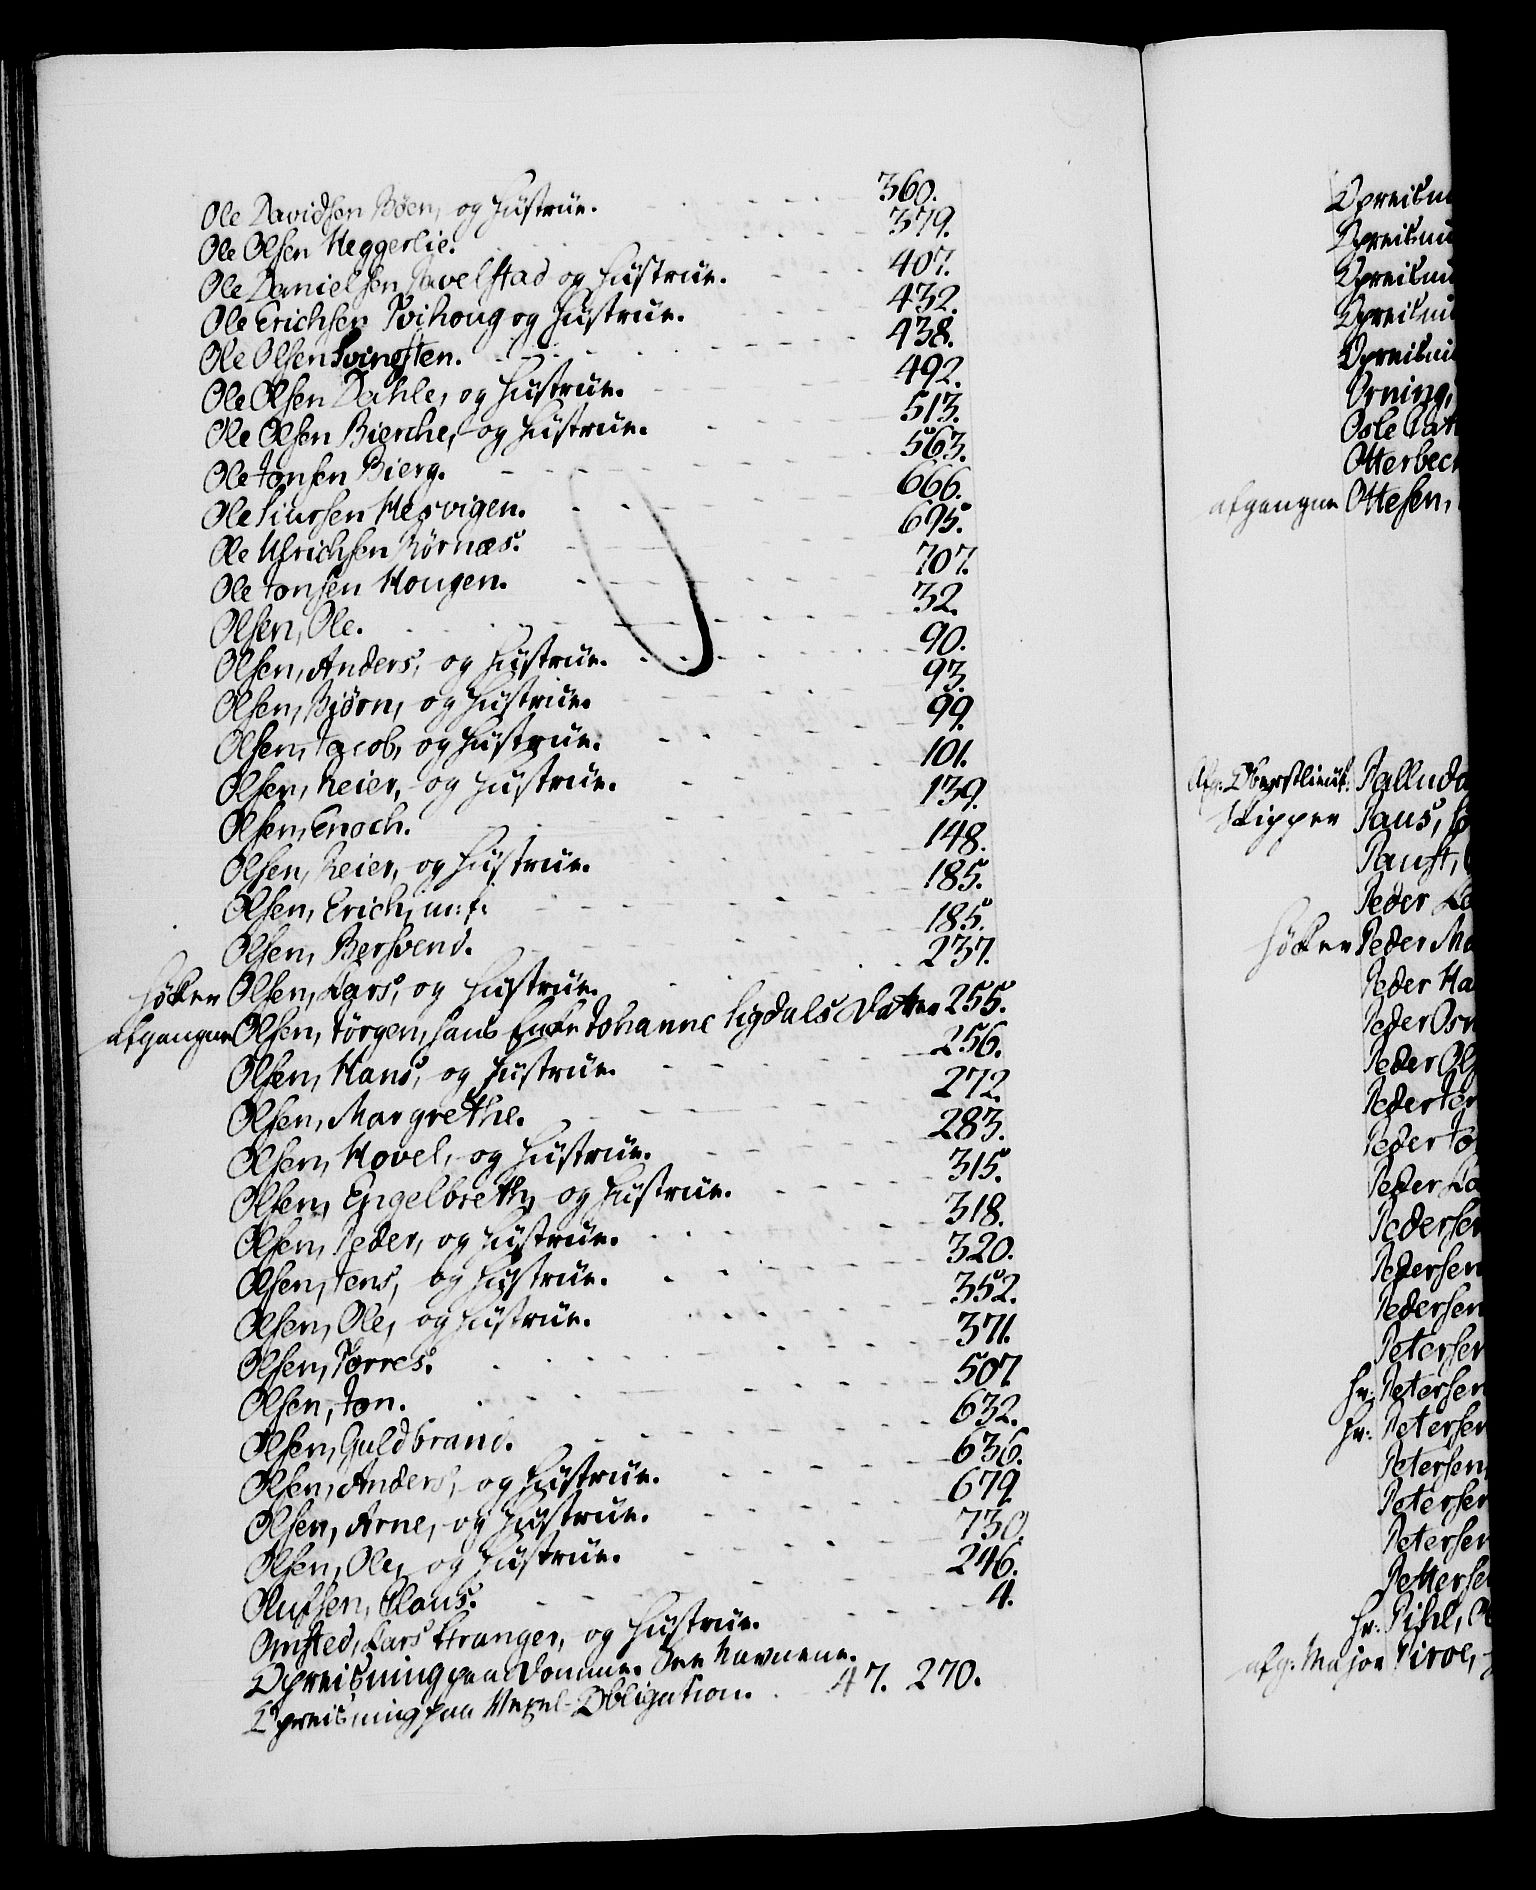 Ole Davidsen Böen, og Hustrue. 360.
Ole Olsen Heggerlie. 379.
Ole Danielsen Javelstad og Hustrue. 407.
Ole Erichsen Tvihoug og Hustrue. 432.
Ole Olsen Svingsten. 438.
Ole Olsen Dahle, og Hustrue. 492.
Ole Olsen Bierche, og Hustrue. 513.
Ole Jonsen Bierg. 563.
Ole Siursen Hesvigen. 666.
Ole Ulrichsen Körnæs. 695.
Ole Jonsen Hougen. 707.
Olsen, Ole. 32.
Olsen, Anders, og Hustrue. 90.
Olsen, Biörn, og Hustrue. 93.
Olsen, Jacob, og Hustrue. 99.
Olsen, Reier, og Hustrue. 101.
Olsen, Enoch. 139.
Olsen, Reier, og Hustrue. 148.
Olsen, Erich, m: f: 185.
Olsen, Bersvend. 185.
Höker Olsen, Lars, og Hustrue. 237.
afgangne Olsen, Jörgen, hans Enke Johanne Sigdals Datter 255.
Olsen, Hans, og Hustrue. 256.
Olsen, Margrethe. 272.
Olsen, Hovel, og Hustrue. 283.
Olsen, Engelbreth, og Hustrue. 315.
Olsen, Peder, og Hustrue. 318.
Olsen, Jens, og Hustrue. 320.
Olsen, Ole, og Hustrue. 352.
Olsen, Torres. 371.
Olsen, Jon. 507
Olsen, Guldbrand. 632.
Olsen, Anders, og Hustrue. 636.
Olsen, Arne, og Hustrue. 679
Olsen, Ole, og Hustrue. 730.
Olufsen, Claus. 246.
Omsted, Lars Stranger, og Hustrue. 4.
Opreisning paa Domme. See Navnene.
Opreisning paa Vexel-Obligation. 47. 270.
Opreisn
Opreisni
Opreisni
Opreisni
Opreisni
Orning,
Osle Cat
Otterbec
afgangne Ottesen,
Afg: Oberstlieut: Palluda
Skipper Paus,
Paust,
Peder Le
Höker Peder Ma
Peder Ha
Peder Osm
Peder Ols
Peder Jen
Peder Jo
Peder La
Pedersen
Pedersen
Pedersen
Petersen
Hr: Petersen
Hr: Petersen
Petersen
Petersen
Petersen
Pettersen
Hr: Pihl,
afg: Major Piroe,